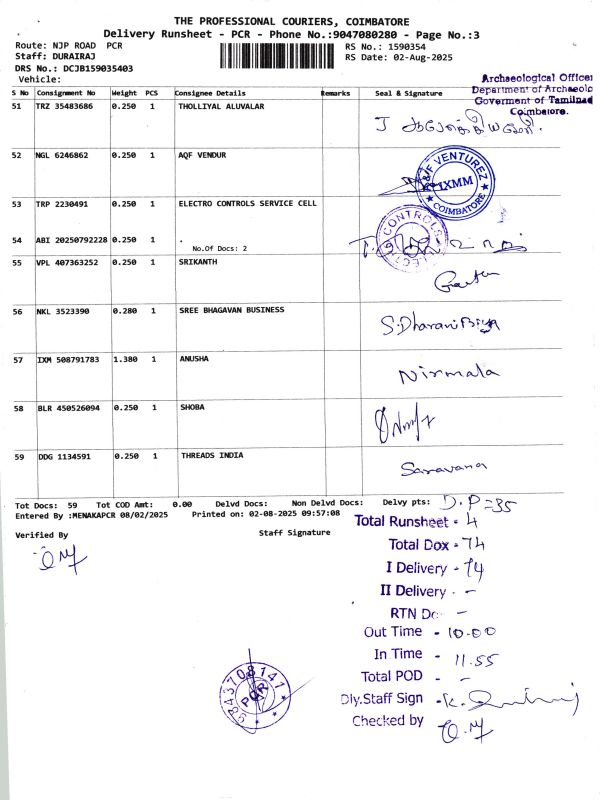 THE PROFESSIONAL COURIERS, COIMBATORE
Delivery Runsheet - PCR - Phone No.:9047080280 - Page No.:3
Route: NJP ROAD PCR
RS No.: 1590354
Staff: DURAIRAJ
RS Date: 02-Aug-2025
DRS No.: DCJB159035403
Vehicle:
Archaeological Officer
Department of Archaeolo
Goverment of Tamilnad
Coimbatore.
S No Consignment No Weight PCS Consignee Details Remarks Seal & Signature
51 TRZ 35483686 0.250 1 THOLLIYAL ALUVALAR
52 NGL 6246862 0.250 1 AQF VENDUR
VENTUREZ IXMM COIMBATORE
53 TRP 2230491 0.250 1 ELECTRO CONTROLS SERVICE CELL
CONTROLS
54 ABI 20250792228 0.250 1 .
No.Of Docs: 2
55 VPL 407363252 0.250 1 SRIKANTH
56 NKL 3523390 0.280 1 SREE BHAGAVAN BUSINESS
S.Dharani Priya
57 IXM 508791783 1.380 1 ANUSHA
Nirmala
58 BLR 450526094 0.250 1 SHOBA
59 DDG 1134591 0.250 1 THREADS INDIA
Saravana
Tot Docs: 59 Tot COD Amt: 0.00 Delvd Docs: Non Delvd Docs: Delvy pts: D.P=35
Entered By :MENAKAPCR 08/02/2025 Printed on: 02-08-2025 09:57:08
Verified By
Staff Signature
Total Runsheet - 4
Total Dox - 74
I Delivery - 74
II Delivery - -
RTN Do -
Out Time - 10.00
In Time - 11.55
Total POD - -
Dly.Staff Sign -
Checked by
9843708141
PCR